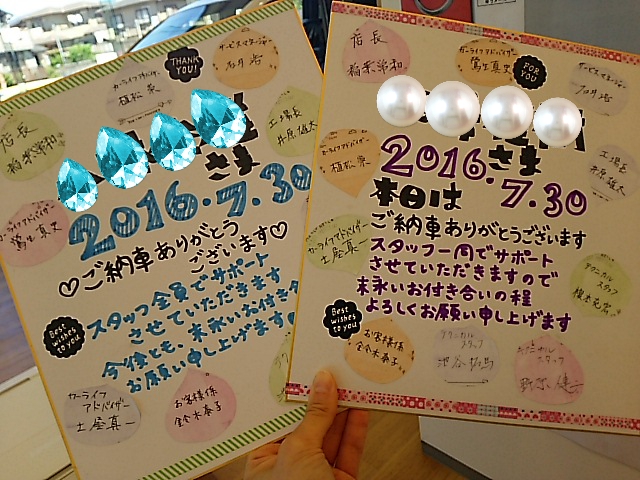 THANK
YOU!
カーライフアドバイザー
植松 宗
サービスマネージャー
石井 浩
店長
稲葉常和
工場長
井原雄太
さま
2016.7.30
♡ご納車ありがとう
ございます♡
スタッフ全員でサポート
させていただきます
今後とも、末永いお付き合
お願い申し上げます
Best
wishes
to you
カーライフ
アドバイザー
土屋真一
お客様係
金子木泰子
店長
稲葉常和
カーライフアドバイザー
FOR
YOU
サービスマネージャー
石井 浩
工場長
井原雄太
カーライフアドバイザー
植松 宗
さま
2016.7.30
本日は
ご納車ありがとうございます
スタッフ一同でサポート
させていただきますので
末永いお付き合いの程
よろしくお願い申し上げます
カーライフアドバイザー
土屋真一
テクニカル
スタッフ
Best
wishes
to you
お客様係
テクニカル
スタッフ
池谷
テクニカル
スタッフ